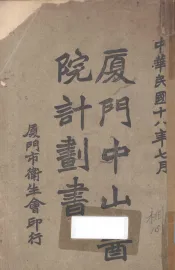 中華民國十八年七月
厦門中山醫
院計劃書
厦門市衛生會印行